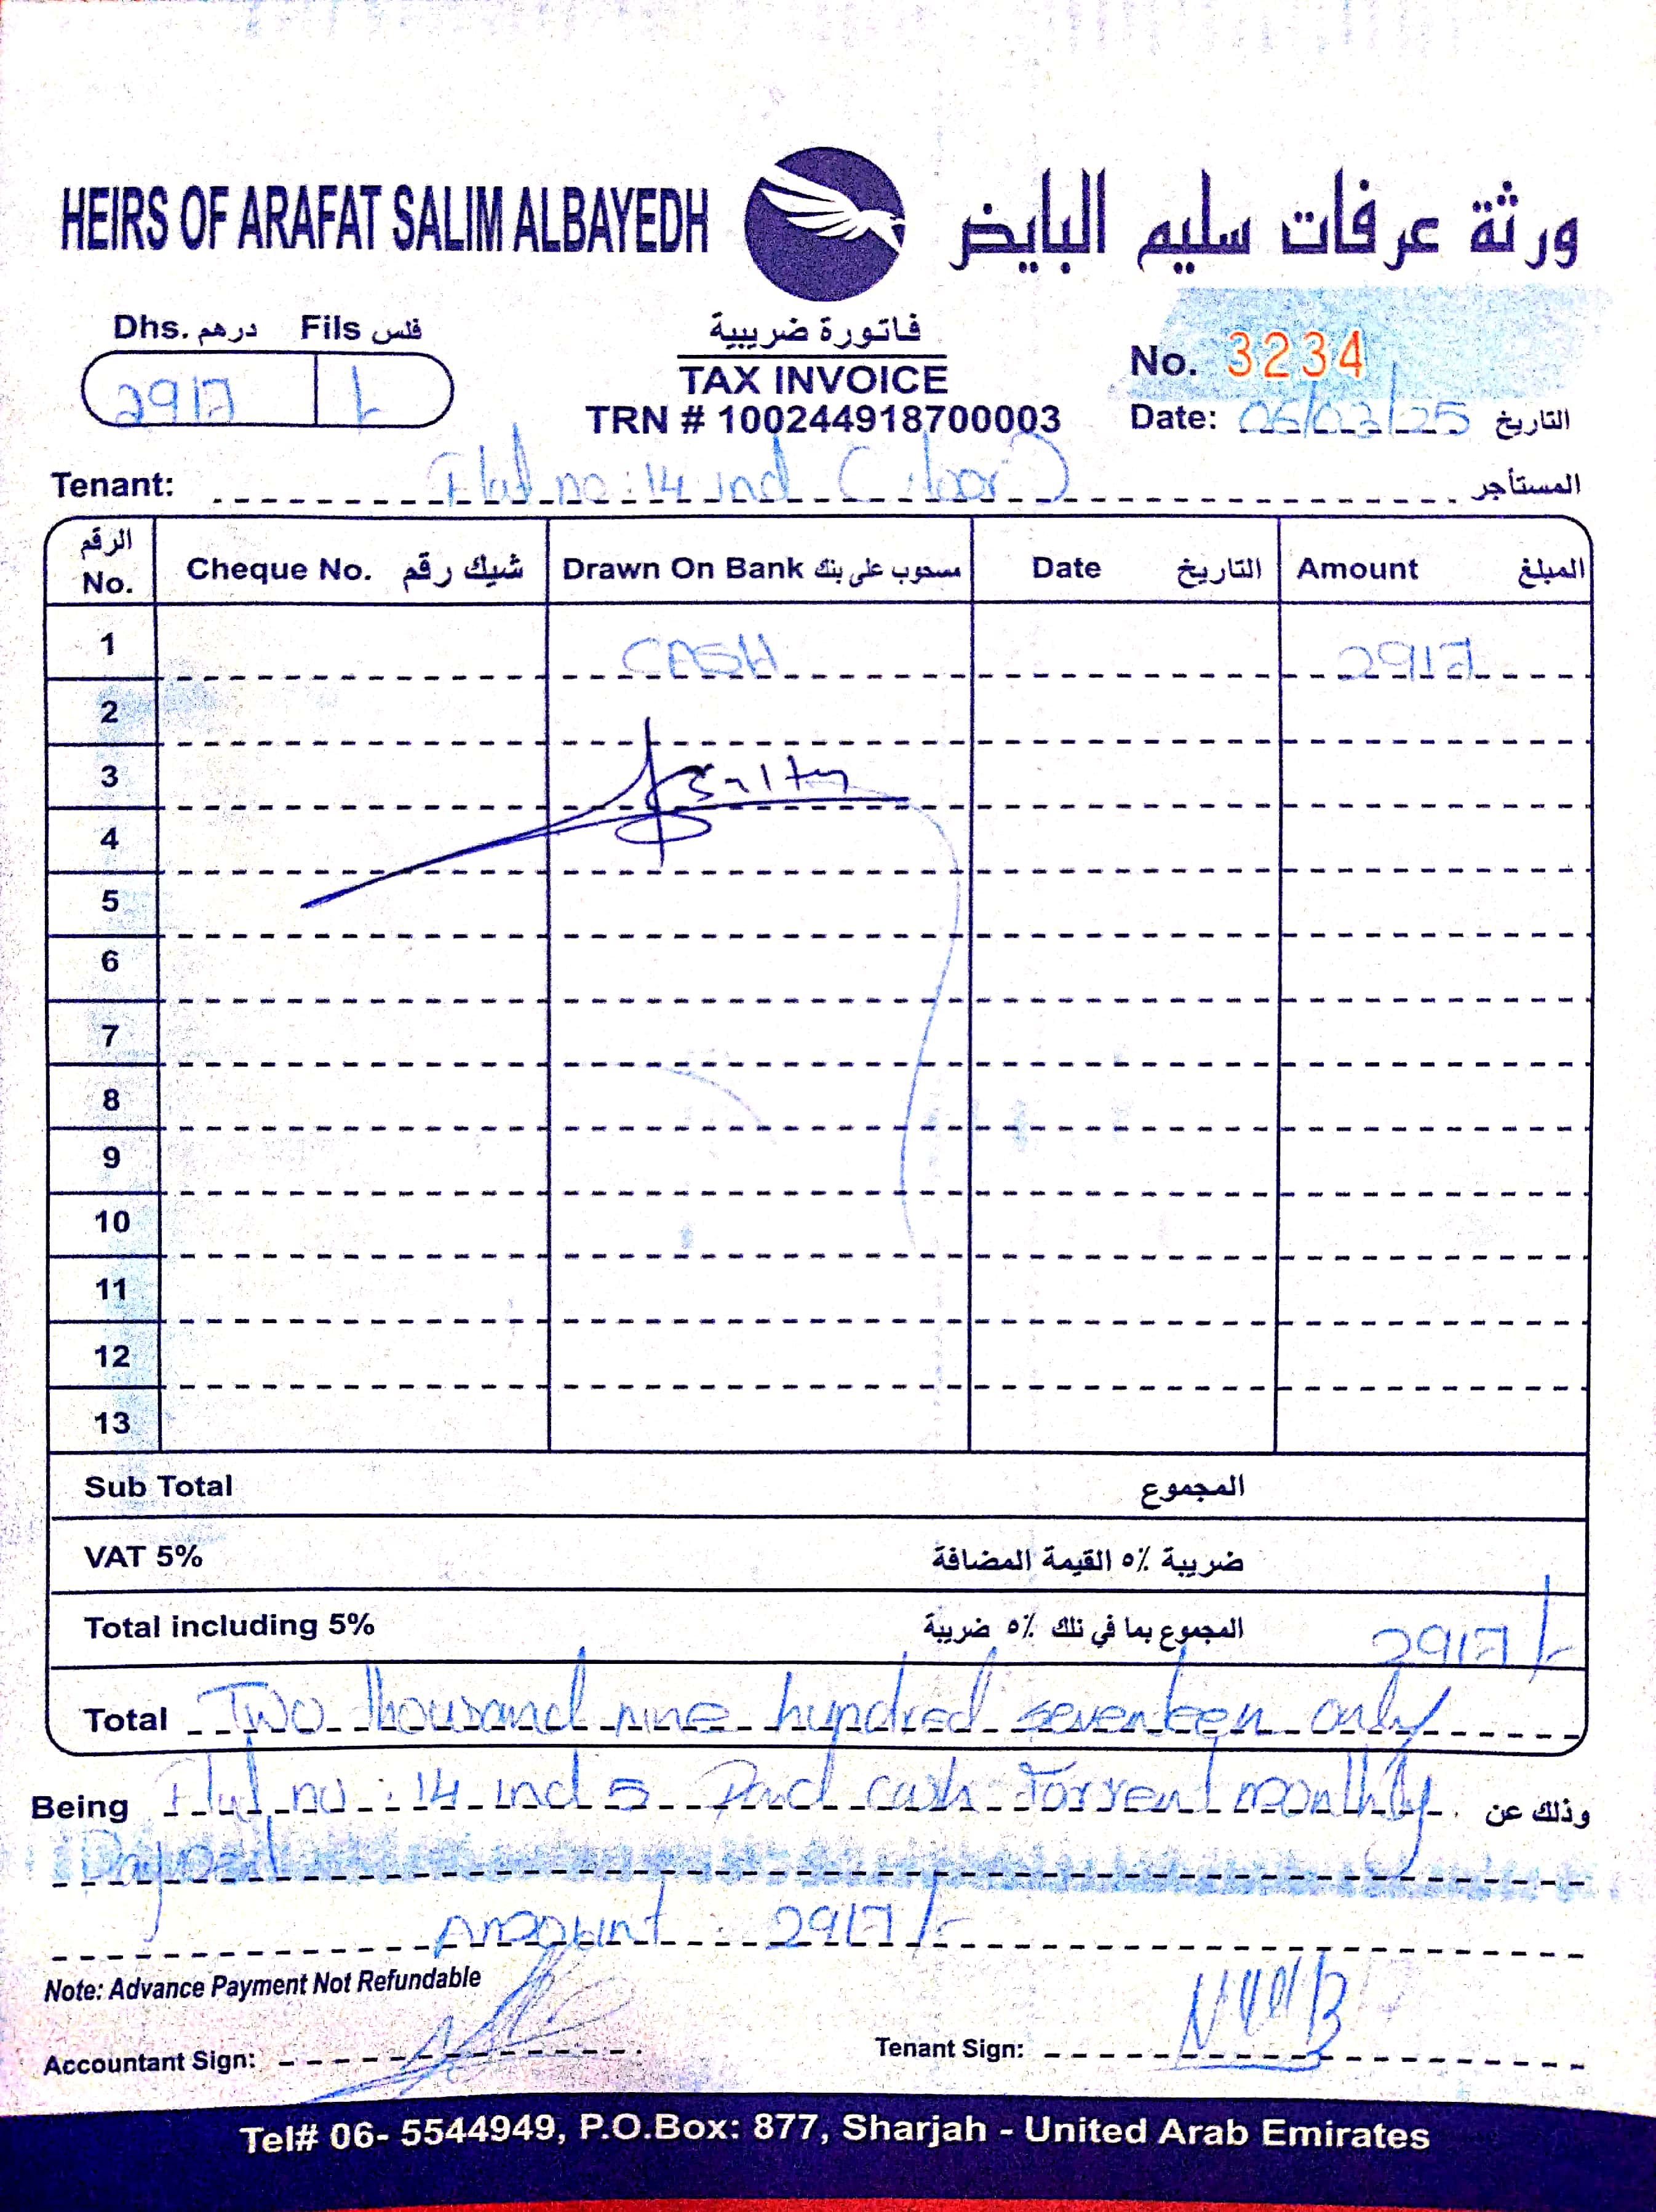 HEIRS OF ARAFAT SALIM ALBAYEDH ورثة عرفات سليم البايض
Dhs. درهم Fils فلس
2917
فاتورة ضريبية
TAX INVOICE
TRN # 100244918700003
No. 3234
Date: 06/03/25 التاريخ
Tenant: Flat no: 14 ind المستأجر
الرقم No. Cheque No. شيك رقم Drawn On Bank مسحوب على بنك Date التاريخ Amount المبلغ
1 CASH 2917
2
3
4
5
6
7
8
9
10
11
12
13
Sub Total المجموع
VAT 5% ضريبة ٥٪ القيمة المضافة
Total including 5% المجموع بما في ذلك ٥٪ ضريبة 2917/-
Total Two thousand nine hundred seventeen only
Being Flat no: 14 ind 5 Paid cash for rent monthly وذلك عن
Payment
Amount: 2917/-
Note: Advance Payment Not Refundable
Accountant Sign:
Tenant Sign:
Tel# 06- 5544949, P.O.Box: 877, Sharjah - United Arab Emirates